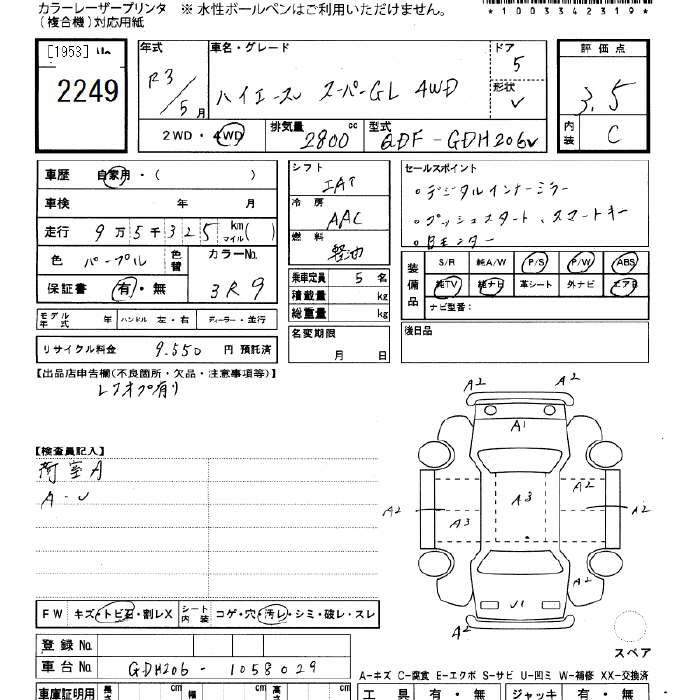 カラーレーザープリンタ ※ 水性ボールペンはご利用いただけません。
(複合機)対応用紙
*1003342319*
[1953]
2249
年式
R3/5月
車名・グレード
ハイエースV スーパーGL 4WD
ドア
5
形状
V
評価点
3.5
内装
C
2WD・4WD
排気量
2800 cc
型式
QDF-GDH206V
車歴 自家用・( )
車検 年 月
走行 9万5千325 km マイル( )
色 パープル 色替 カラーNo.
保証書 有・無 3R9
シフト
IAT
冷房
AAC
燃料
軽油
乗車定員 5 名
積載量 kg
総重量 kg
名変期限
月 日
セールスポイント
○デジタルインナーミラー
○プッシュスタート、スマートキー
○Bモニター
装備品
S/R 純A/W P/S P/W ABS
純TV 純ナビ 革シート 外ナビ エアB
ナビ型番:
後日品
モデル年式 年 ハンドル 左・右 ディーラー・並行
リサイクル料金 9.550 円 預託済
【出品店申告欄(不良箇所・欠品・注意事項等)】
レスオプ有り
【検査員記入】
荷室A
A・U
A2 A2
A1
A2 A2 A3 A3 A2 A2
U1
A2
スペア
FW キズ・トビ石・割レX シート内装 コゲ・穴・汚レ・シミ・破レ・スレ
登録 No.
車台 No. GDH206-1058029
A-キズ C-腐食 E-エクボ S-サビ U-凹ミ W-補修 XX-交換済
車庫証明用 長さ cm 幅 cm 高さ cm
工具 有・無 ジャッキ 有・無